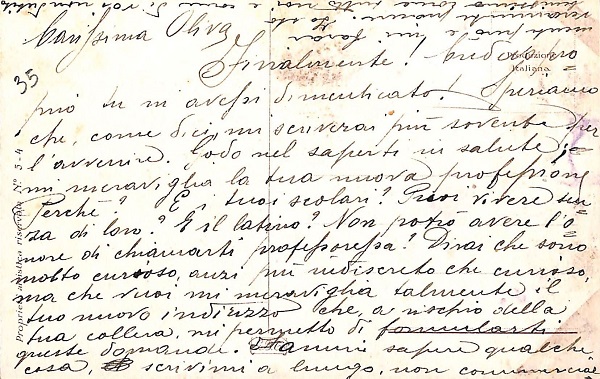 Carissima Oliva
Finalmente! Credevo non
più tu m'avessi dimenticato! Speriamo
che, come dici, mi scriverai più sovente per
l'avvenire. Godo nel saperti in salute;
mi meraviglia la tua nuova professione
Perchè? E i tuoi scolari? Puoi vivere sen=
za di loro? E il latino? Non potrò avere l'o=
nore di chiamarti professoressa? Dirai che sono
molto curioso, anzi più indiscreto che curioso,
ma che vuoi, mi meraviglia talmente il
tuo nuovo indirizzo che, a rischio della
tua collera, mi permetto di formularti
queste domande. Fammi sapere qualche
cosa, scrivimi a lungo, non
35
Italiana
Proprietà artistica riservata N° 5-4